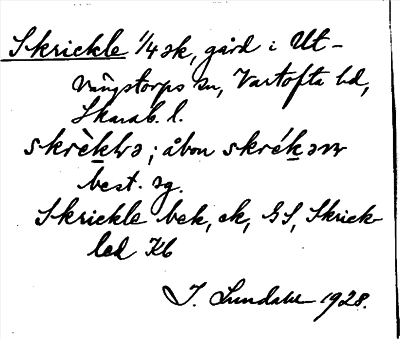 Skrickle 1/4 sk, gård i Ut-
vängstorps sn, Vartofta hd,
Skarab. l.
skrèklə; åbon skrékəm
best. sg.
Skrickle bek, ek, GS, Skrick-
led Kb
I. Lundahl 1928.